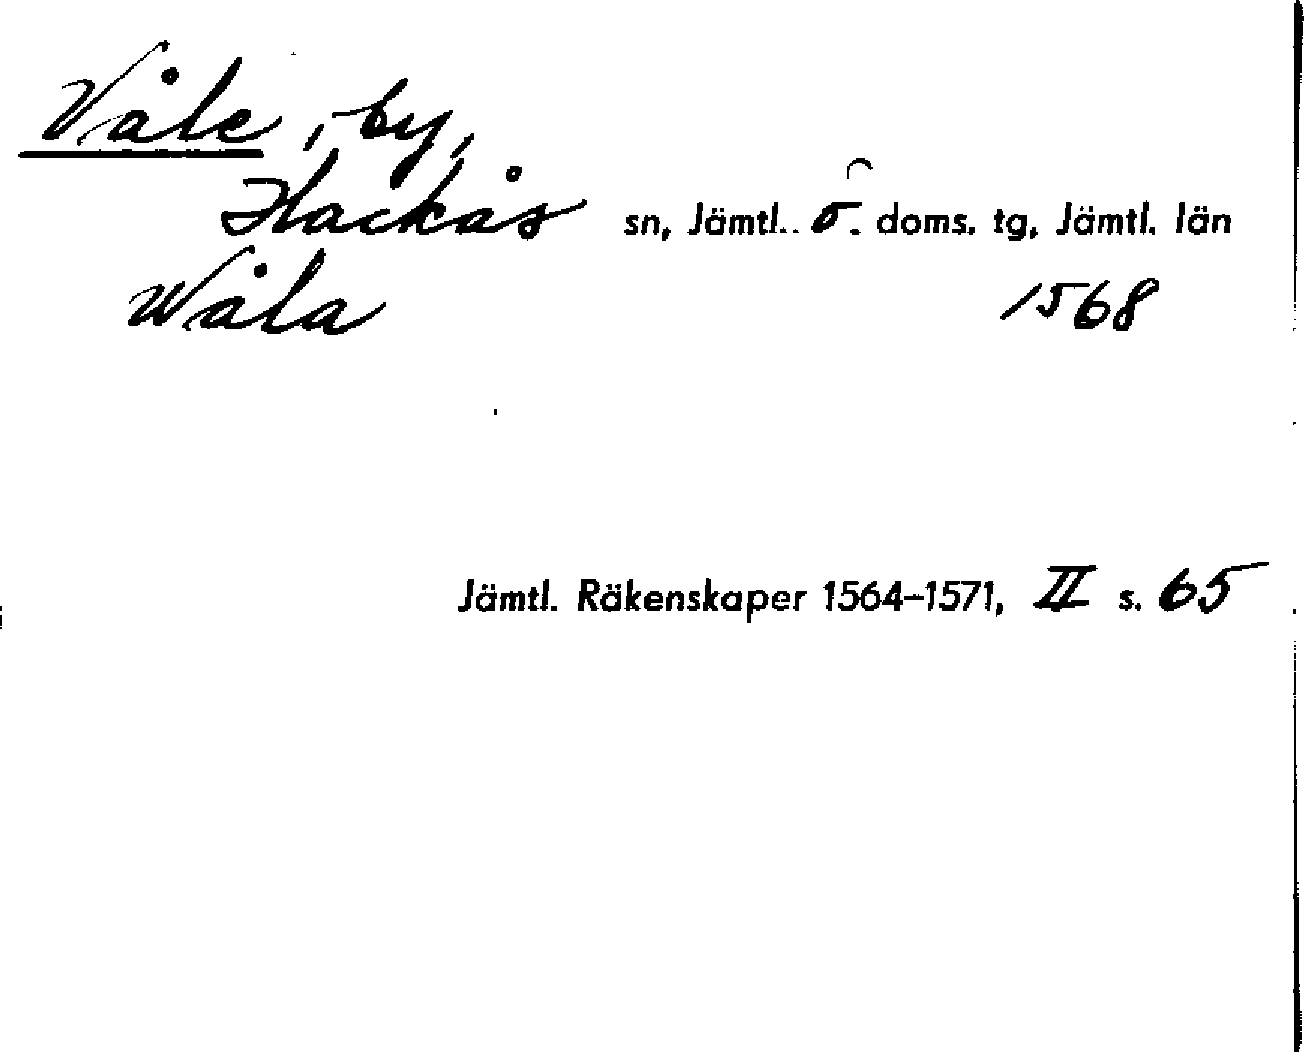 Våle, by,
Hackås sn, Jämtl. ö. doms. tg, Jämtl. län
Wåla 1568
Jämtl. Räkenskaper 1564–1571, II s. 65